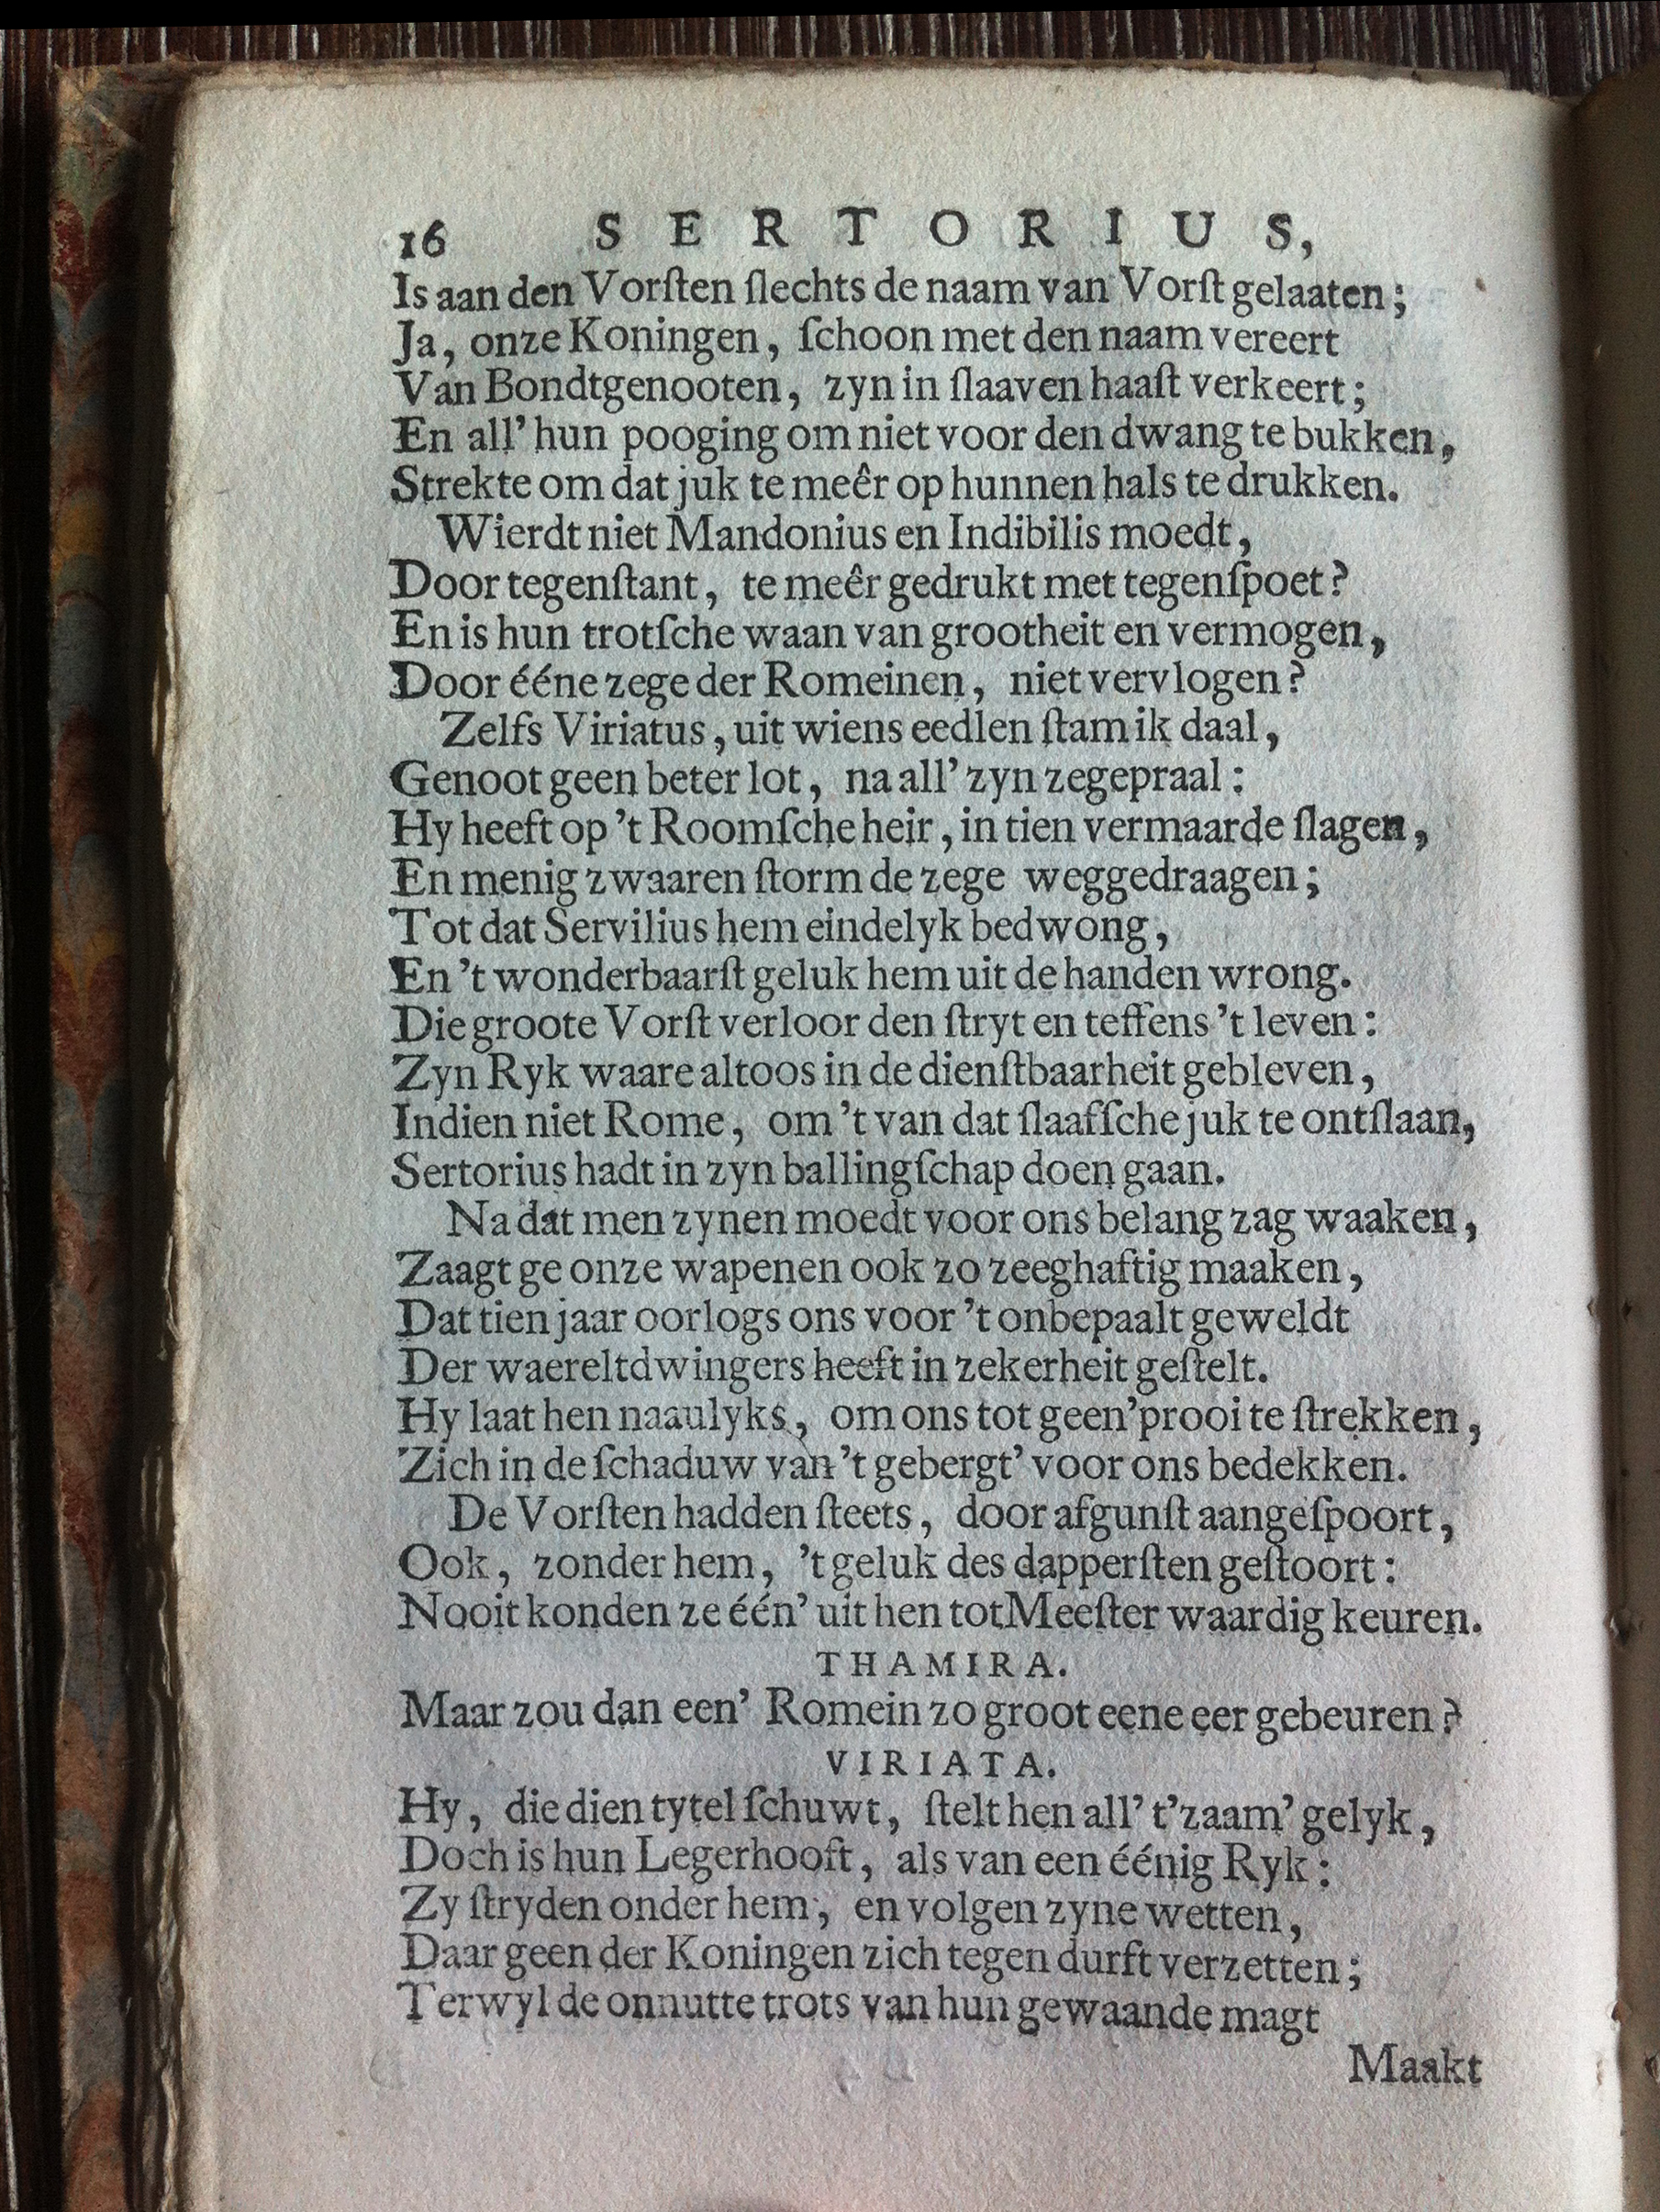 16 SERTORIUS,
Is aan den Vorſten ſlechts de naam van Vorſt gelaaten;
Ja, onze Koningen, ſchoon met den naam vereert
Van Bondtgenooten, zyn in ſlaaven haaſt verkeert;
En all' hun pooging om niet voor den dwang te bukken,
Strekte om dat juk te meêr op hunnen hals te drukken.
Wierdt niet Mandonius en Indibilis moedt,
Door tegenſtant, te meêr gedrukt met tegenſpoet?
En is hun trotſche waan van grootheit en vermogen,
Door ééne zege der Romeinen, niet vervlogen?
Zelfs Viriatus, uit wiens eedlen ſtam ik daal,
Genoot geen beter lot, na all' zyn zegepraal:
Hy heeft op 't Roomſche heir, in tien vermaarde ſlagen,
En menig zwaaren ſtorm de zege weggedraagen;
Tot dat Servilius hem eindelyk bedwong,
En 't wonderbaarſt geluk hem uit de handen wrong.
Die groote Vorſt verloor den ſtryt en teffens 't leven:
Zyn Ryk waare altoos in de dienſtbaarheit gebleven,
Indien niet Rome, om 't van dat ſlaafſche juk te ontſlaan,
Sertorius hadt in zyn ballingſchap doen gaan.
Na dat men zynen moedt voor ons belang zag waaken,
Zaagt ge onze wapenen ook zo zeeghaftig maaken,
Dat tien jaar oorlogs ons voor 't onbepaalt geweldt
Der waereltdwingers heeft in zekerheit geſtelt.
Hy laat hen naaulyks, om ons tot geen' prooi te ſtrekken,
Zich in de ſchaduw van 't gebergt' voor ons bedekken.
De Vorſten hadden ſteets, door afgunſt aangeſpoort,
Ook, zonder hem, 't geluk des dapperſten geſtoort:
Nooit konden ze één' uit hen tot Meeſter waardig keuren.
THAMIRA.
Maar zou dan een' Romein zo groot eene eer gebeuren?
VIRIATA.
Hy, die dien tytel ſchuwt, ſtelt hen all' t'zaam' gelyk,
Doch is hun Legerhooft, als van een éénig Ryk:
Zy ſtryden onder hem, en volgen zyne wetten,
Daar geen der Koningen zich tegen durft verzetten;
Terwyl de onnutte trots van hun gewaande magt
Maakt